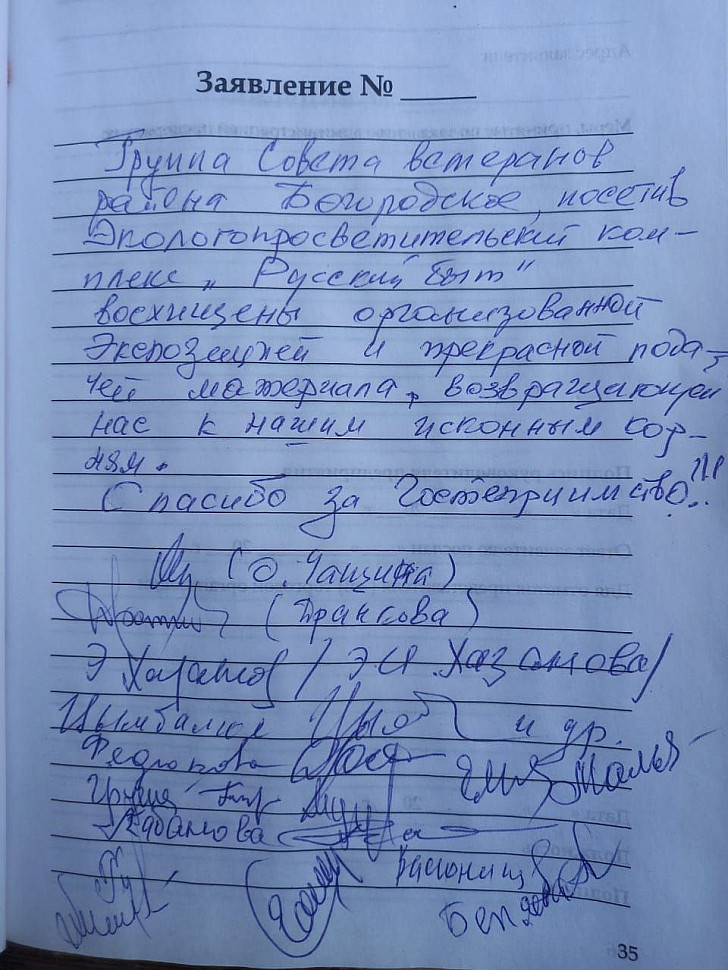 Заявление №
Группа Совета ветеранов
района Богородское, посетив
Экологопросветительский ком-
плекс „Русский быт"
восхищены организованной
Экспозицией и прекрасной пода-
чей материала, возвращающей
нас к нашим исконным кор-
ням.
Спасибо за Гостеприимство!!!
(О. Чащина)
(Дранкова)
Э Хазанов / Э И. Хазанова/
Цымбалюк и др.
Федракова
Кабанова
35